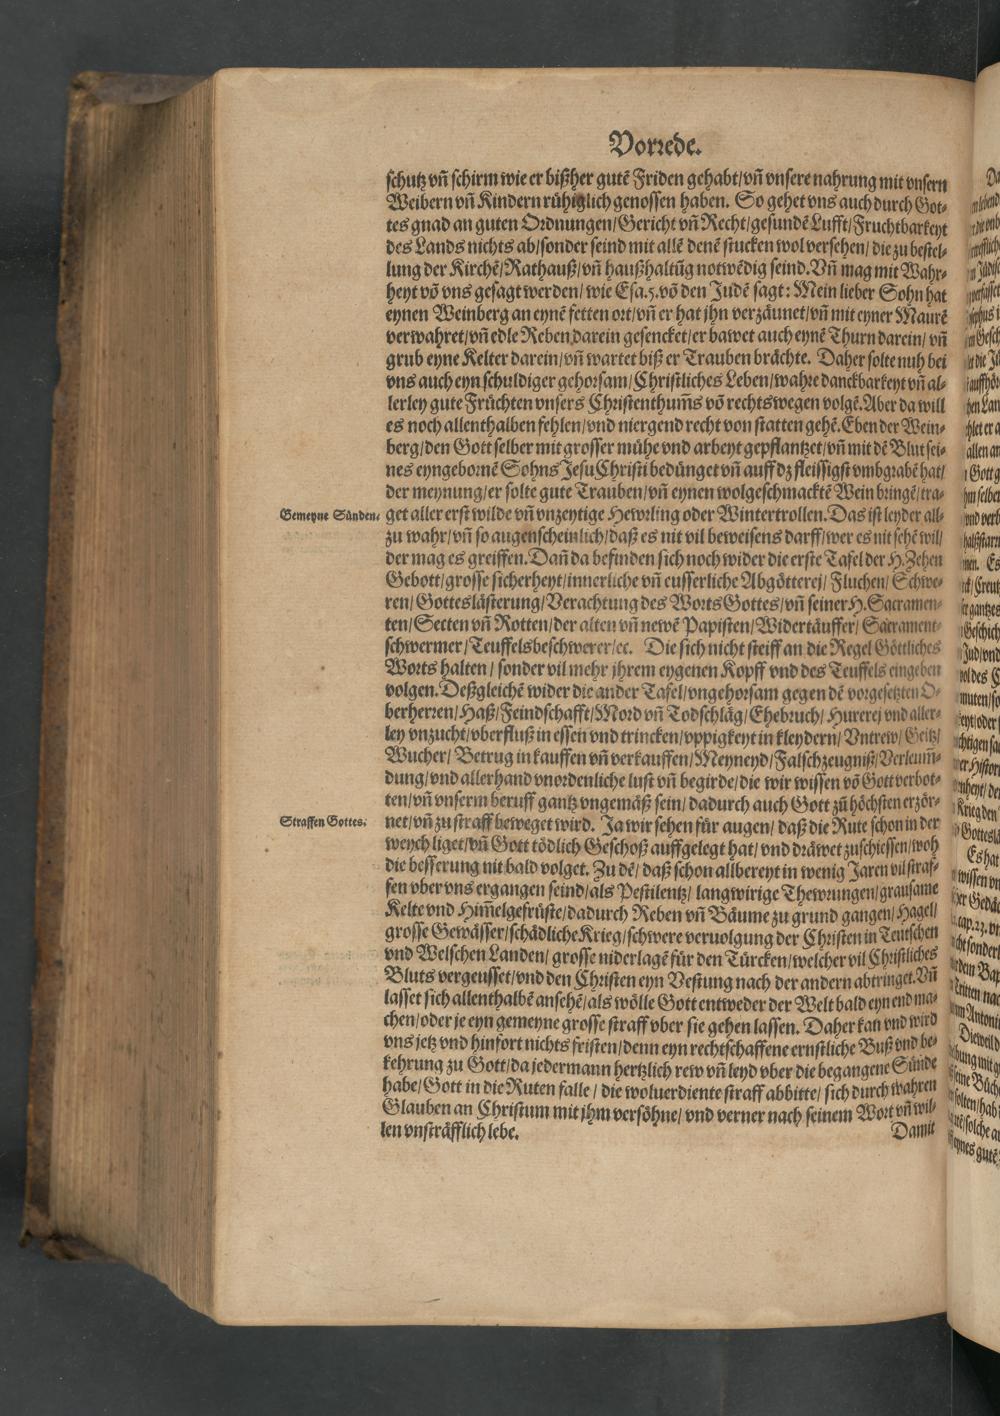 Vorrede.
schutz vñ schirm wie er bißher gutẽ Friden gehabt/vñ vnsere nahrung mit vnsern
Weibern vñ Kindern rühiglich genossen haben. So gehet vns auch durch Got-
tes gnad an guten Ordnungen/Gericht vñ Recht/gesundẽ Lufft/Fruchtbarkeyt
des Lands nichts ab/sonder seind mit allẽ denẽ stucken wol versehen/ die zu bestel-
lung der Kirchẽ/Rathauß/vñ haußhaltũg notwẽdig seind. Vñ mag mit Wahr-
heyt võ vns gesagt werden/ wie Esa. 5. võ den Judẽ sagt: Mein lieber Sohn hat
eynen Weinberg an eynẽ fetten ort/vñ er hat jhn verzäunet/vñ mit eyner Maurẽ
verwahret/vñ edle Reben darein gesencket/er bawet auch eynẽ Thurn darein/ vñ
grub eyne Kelter darein/vñ wartet biß er Trauben brächte. Daher solte nuh bei
vns auch eyn schuldiger gehorsam/Christliches Leben/wahre danckbarkeyt vñ al-
lerley gute Früchten vnsers Christenthum̃s võ rechts wegen volgẽ. Aber da will
es noch allenthalben fehlen/vnd niergend recht von statten gehẽ. Eben der Wein-
berg/den Gott selber mit grosser mühe vnd arbeyt gepflantzet/vñ mit dẽ Blut sei-
nes eyngebornẽ Sohns Jesu Christi bedünget vñ auff dz fleissigst vmbgrabẽ hat/
der meynung/er solte gute Trauben/vñ eynen wolgeschmacktẽ Wein bringẽ/tra-
Gemeyne Sünden.
get aller erst wilde vñ vnzeytige Hewrling oder Wintertrollen. Das ist leyder all-
zu wahr/vñ so augenscheinlich/daß es nit vil beweisens darff/wer es nit sehẽ wil/
der mag es greiffen. Dañ da befinden sich noch wider die erste Tafel der H. Zehen
Gebott/grosse sicherheyt/innerliche vñ eusserliche Abgötterei/ Fluchen/ Schwe-
ren/ Gotteslästerung/Verachtung des Worts Gottes/vñ seiner H. Sacramen-
ten/Secten vñ Rotten/der alten vñ newẽ Papisten/Widertäuffer/ Sacrament-
schwermer/Teuffelsbeschwerer/ꝛc. Die sich nicht steiff an die Regel Göttliches
Worts halten/ sonder vil mehr jhrem eygenen Kopff vnd des Teuffels eingeben
volgen. Deßgleichẽ wider die ander Tafel/vngehorsam gegen dẽ vorgesetzten O-
berherren/Haß/Feindschafft/Mord vñ Todschläg/Ehebruch/ Hurerej vnd aller-
ley vnzucht/vberfluß in essen vnd trincken/vppigkeyt in kleydern/ Vntrew/ Geitz/
Wucher/ Betrug in kauffen vñ verkauffen/Meyneyd/Falsch zeugniß/Verleum̃-
dung/vnd allerhand vnordenliche lust vñ begirde/die wir wissen võ Gott verbot-
ten/vñ vnserm beruff gantz vngemäß sein/ dadurch auch Gott zũ höchsten erzör-
Straffen Gottes.
net/vñ zu straff beweget wird. Ja wir sehen für augen/ daß die Rute schon in der
weych liget/vñ Gott tödlich Geschoß auffgelegt hat/ vnd dräwet zuschiessen/woh
die besserung nit bald volget. Zu dẽ/ daß schon allbereyt in wenig Jaren vil straf-
fen vber vns ergangen seind/als Pestilentz/ langwirige Thewrungen/grausame
Kelte vnd Him̃elgefrüste/dadurch Reben vñ Bäume zu grund gangen/ Hagel/
grosse Gewässer/schädliche Krieg/schwere veruolgung der Christen in Teutschen
vnd Welschen Landen/ grosse niderlagẽ für den Türcken/welcher vil Christliches
Bluts vergeusset/vnd den Christen eyn Vestung nach der andern abtringet. Vñ
lasset sich allenthalbẽ ansehẽ/als wölle Gott entweder der Welt bald eyn end ma-
chen/oder je eyn gemeyne grosse straff vber sie gehen lassen. Daher kan vnd wird
vns jetz vnd hinfort nichts fristen/denn eyn rechtschaffene ernstliche Buß vnd be-
kehrung zu Gott/da jedermann hertzlich rew vñ leyd vber die begangene Sünde
habe/Gott in die Ruten falle / die woluerdiente straff abbitte/ sich durch wahren
Glauben an Christum mit jhm versöhne/ vnd verner nach seinem Wort vñ wil-
len vnsträfflich lebe.
Damit